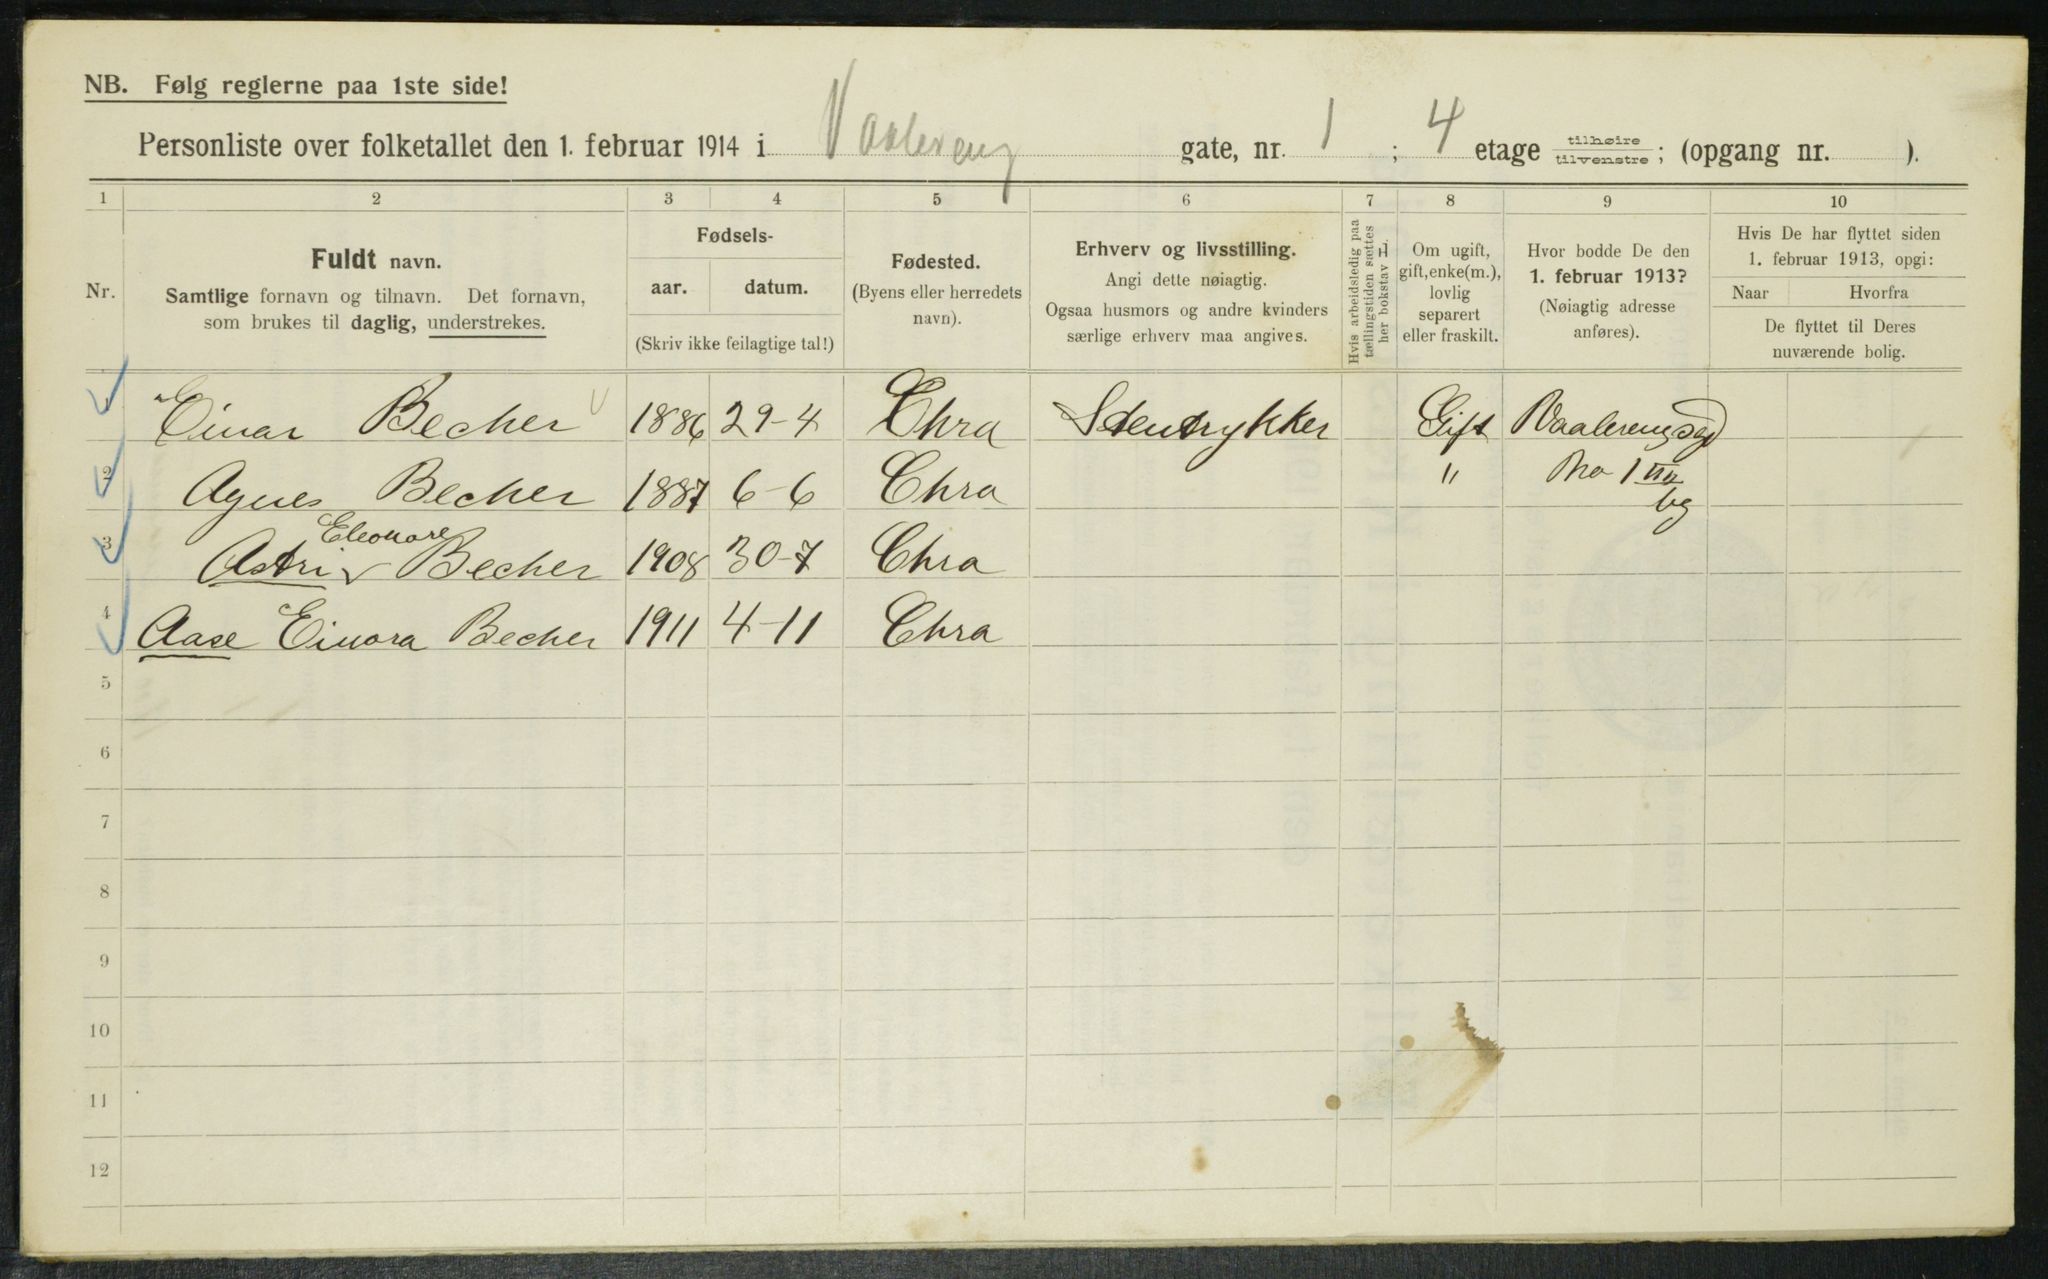 NB. Følg reglerne paa 1ste side!
Personliste over folketallet den 1. februar 1914 i Vaalereng gate, nr. 1 ; 4 etage tilhøire tilvenstre ; (opgang nr. ).
1 2 3 4 5 6 7 8 9 10
Nr.
Fuldt navn.
Samtlige fornavn og tilnavn. Det fornavn,
som brukes til daglig, understrekes.
Fødsels-
aar. datum.
(Skriv ikke feilagtige tal!)
Fødested.
(Byens eller herredets
navn).
Erhverv og livsstilling.
Angi dette nøiagtig.
Ogsaa husmors og andre kvinders
særlige erhverv maa angives.
Hvis arbeidsledig paa
tællingstiden sættes
her bokstav L.
Om ugift,
gift, enke(m.),
lovlig
separert
eller fraskilt.
Hvor bodde De den
1. februar 1913?
(Nøiagtig adresse
anføres).
Hvis De har flyttet siden
1. februar 1913, opgi:
Naar Hvorfra
De flyttet til Deres
nuværende bolig.
1 Einar Becher 1886 29-4 Chra Stentrykker Gift Vaalerengsgd
2 Agnes Becher 1887 6-6 Chra " No 1 VII
bg
Eleonore
3 Astri Becher 1908 30-7 Chra
4 Aase Einora Becher 1911 4-11 Chra
5
6
7
8
9
10
11
12